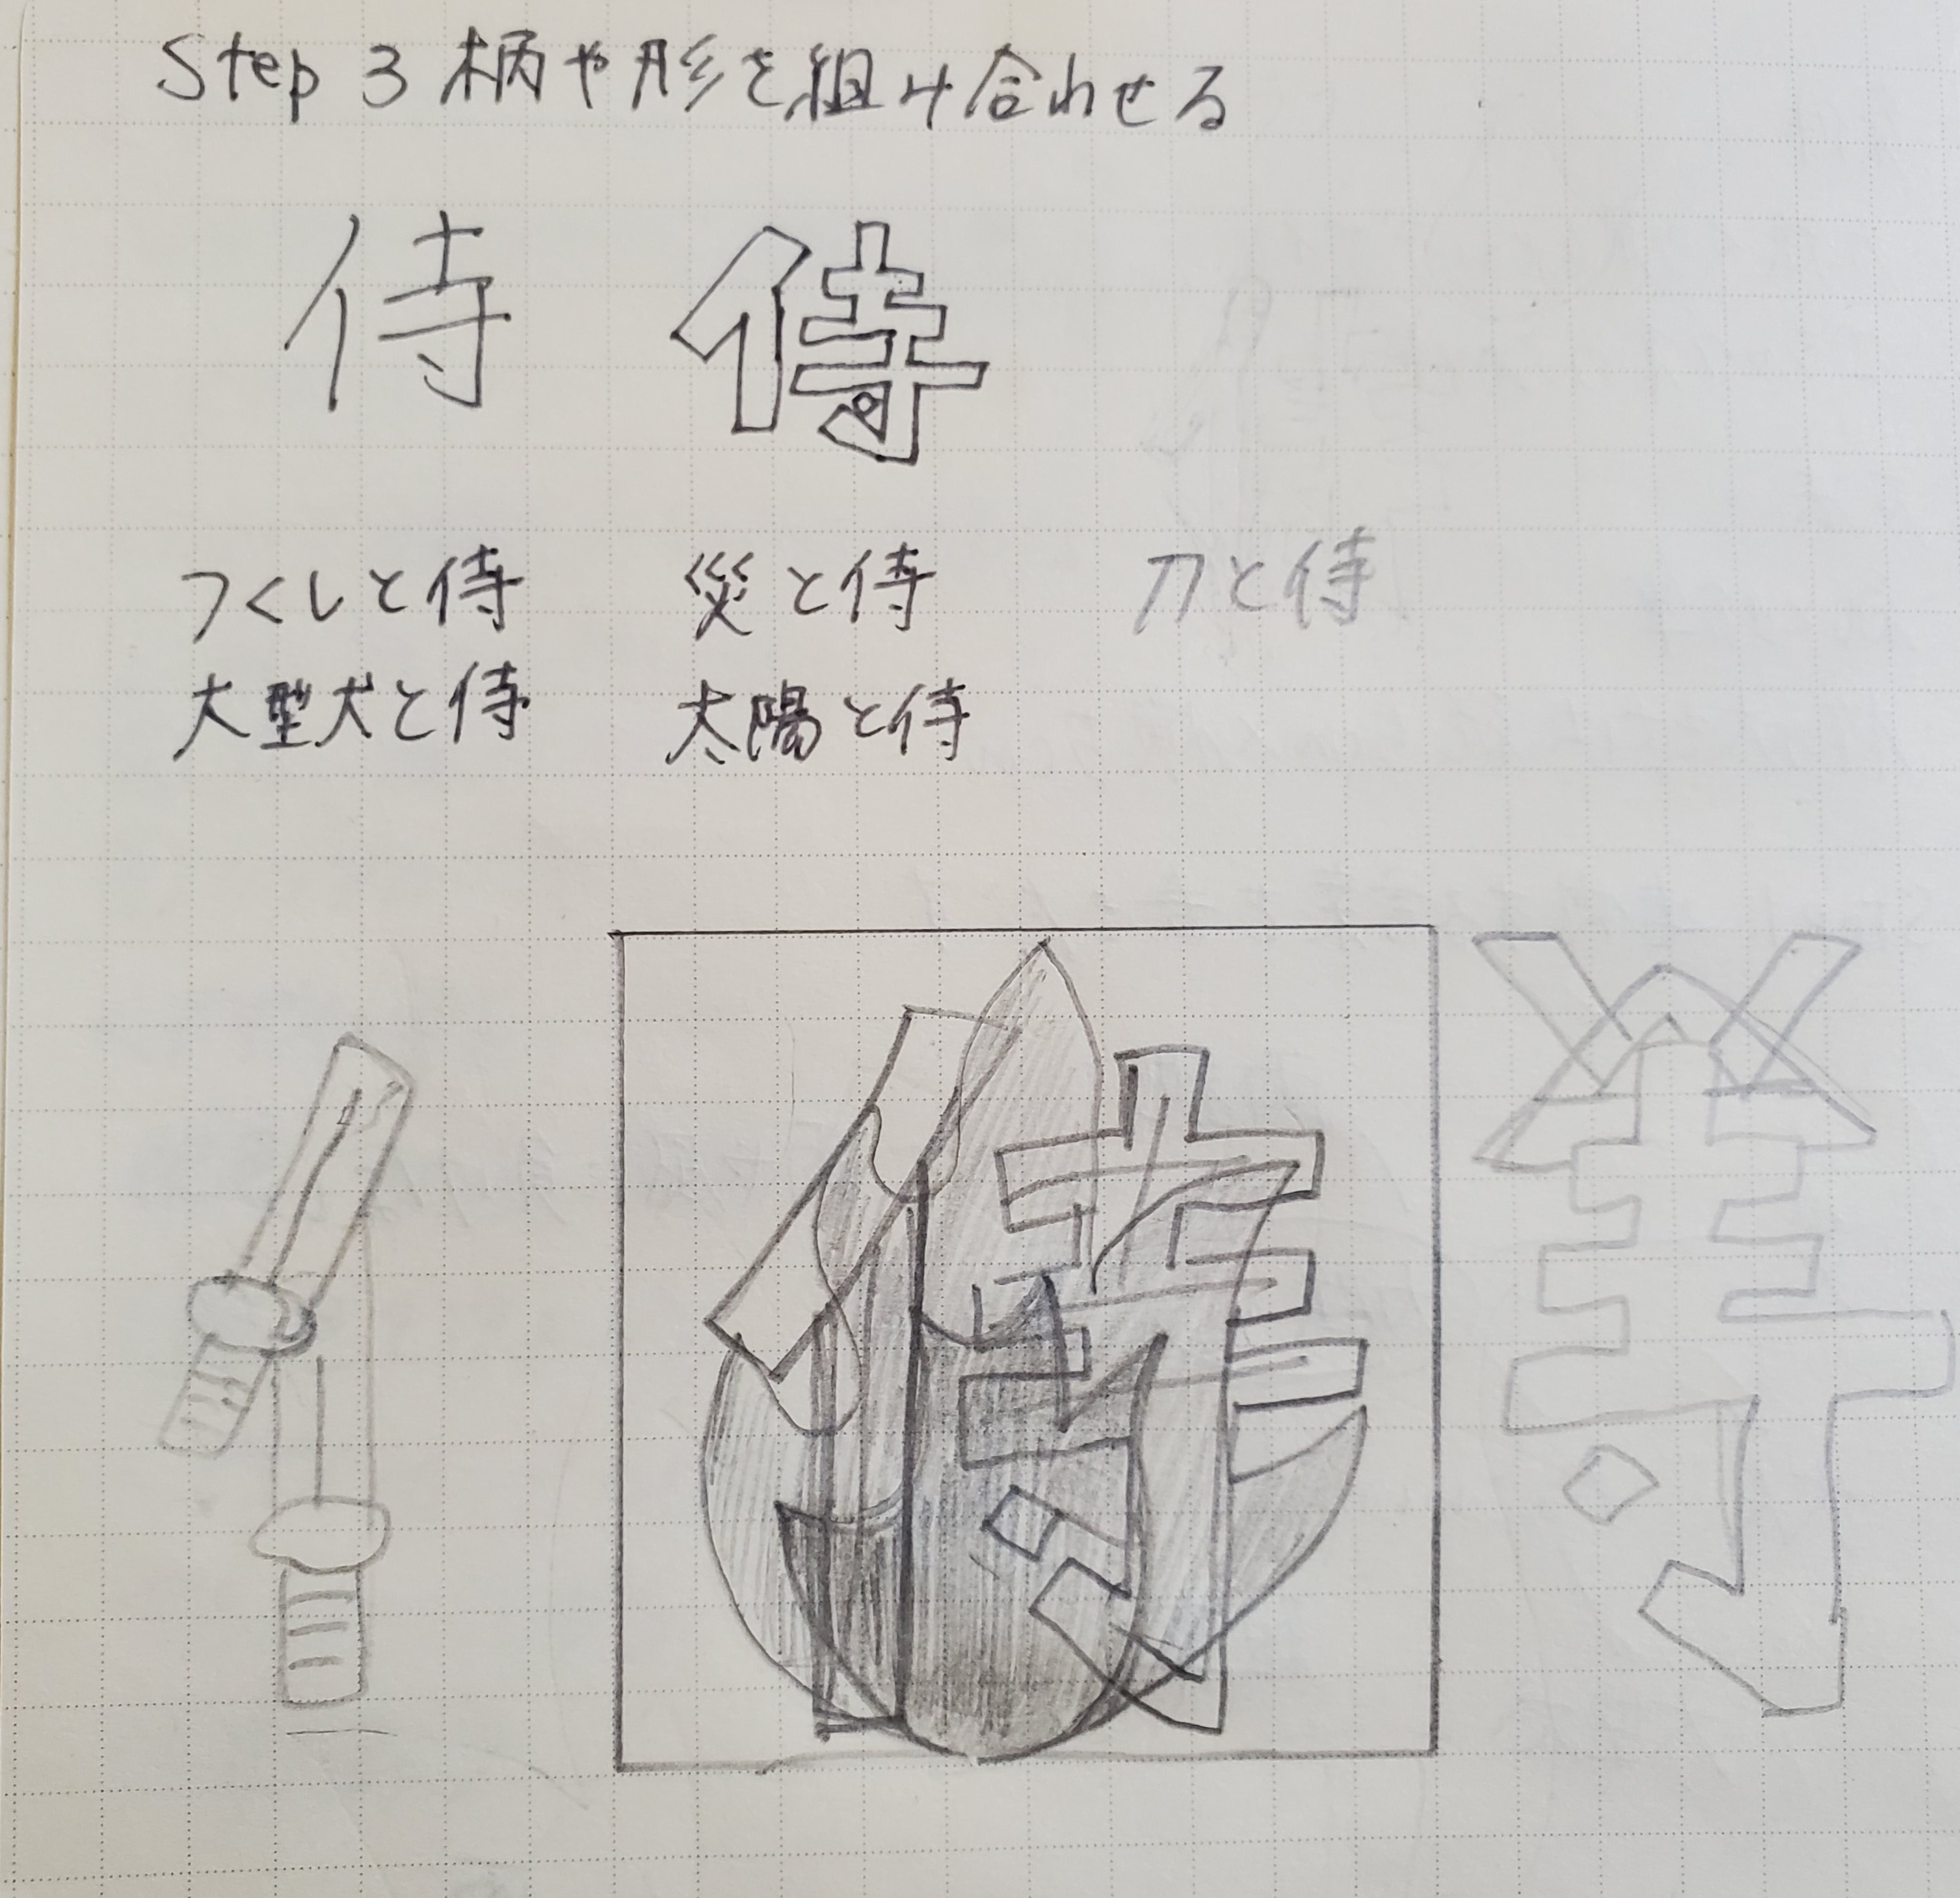 Step 3 柄や形を組み合わせる
侍 侍
つくしと侍 災と侍 刀と侍
大型犬と侍 太陽と侍
侍